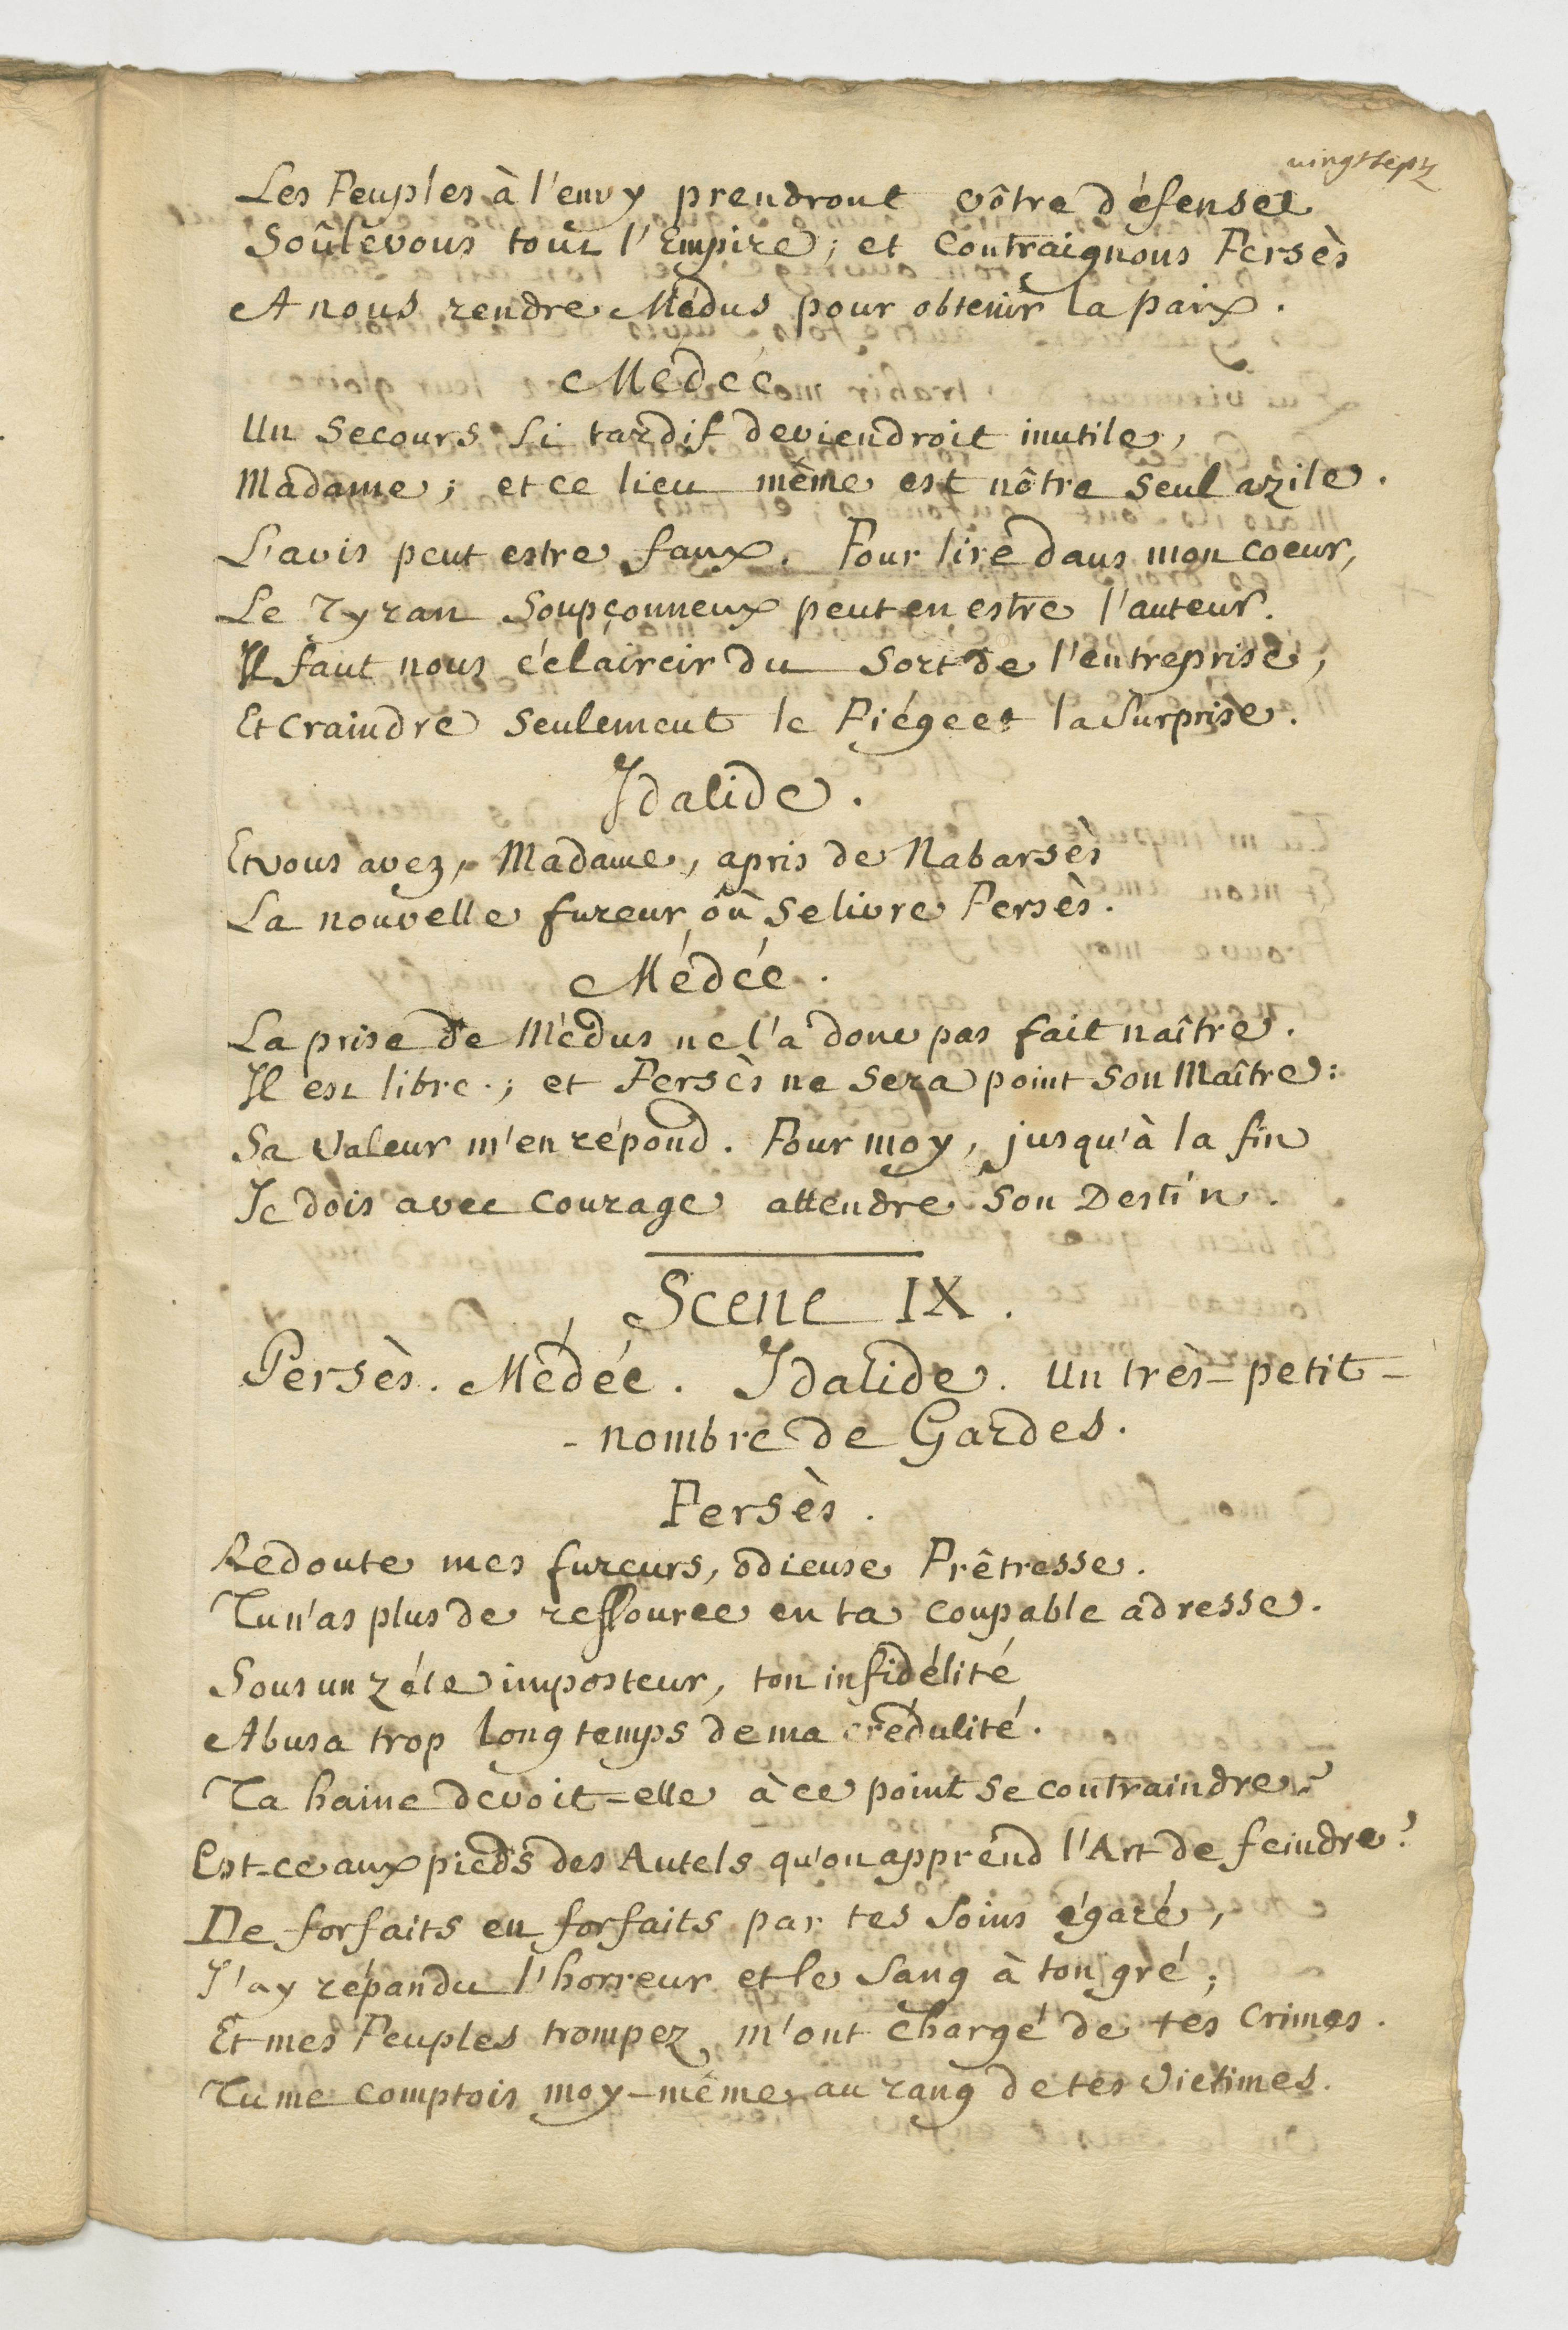 vingt sept
Les Peuples à l'envy prendront vôtre défense
Soûlevons tout l'Empire ; et contraignons Persès
A nous rendre Médus pour obtenir la paix .
Médée
Un secours si tardif deviendroit inutile ,
Madame ; et ce lieu même est nôtre seul azile .
L'avis peut estre faux . Pour lire dans mon coeur,
Le Tyran soupçonneux peut en estre l'auteur .
Il faut nous éclaircir du sort de l'entreprise ,
Et craindre seulement le Piége et la Surprise .
Idalide .
Et vous avez , Madame , apris de Nabarsès
La nouvelle fureur où se livre Persès .
Médée .
La prise de Médus ne l'a donc pas fait naître .
Il est libre ; et Persès ne sera point son Maître :
Sa valeur m'en répond . Pour moy , jusqu'à la fin
Je dois avec courage attendre son Destin .
Scene IX .
Persès . Médée . Idalide . Un très=petit -
- nombre de Gardes .
Persès .
Redoute mes fureurs , odieuse Prêtresse .
Tu n'as plus de ressource en ta coupable adresse .
Sous un zéle imposteur , ton infidélité
Abusa trop long temps de ma crédulité .
Ta haine devoit=elle à ce point se contraindre ?
Est=ce aux pieds des Autels qu'on apprend l'Art de feindre ?
De forfaits en forfaits par tes soins égaré ,
J'ay répandu l'horreur et le sang à ton gré ;
Et mes Peuples trompez m'ont chargé de tes crimes .
Tu me comptois moy-même au rang de tes victimes .